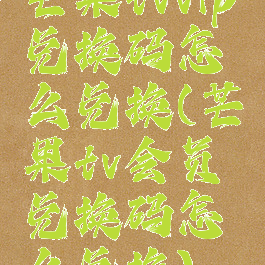 芒果tvvip
兑换码怎
么兑换(芒
果tv会员
兑换码怎
么兑换)